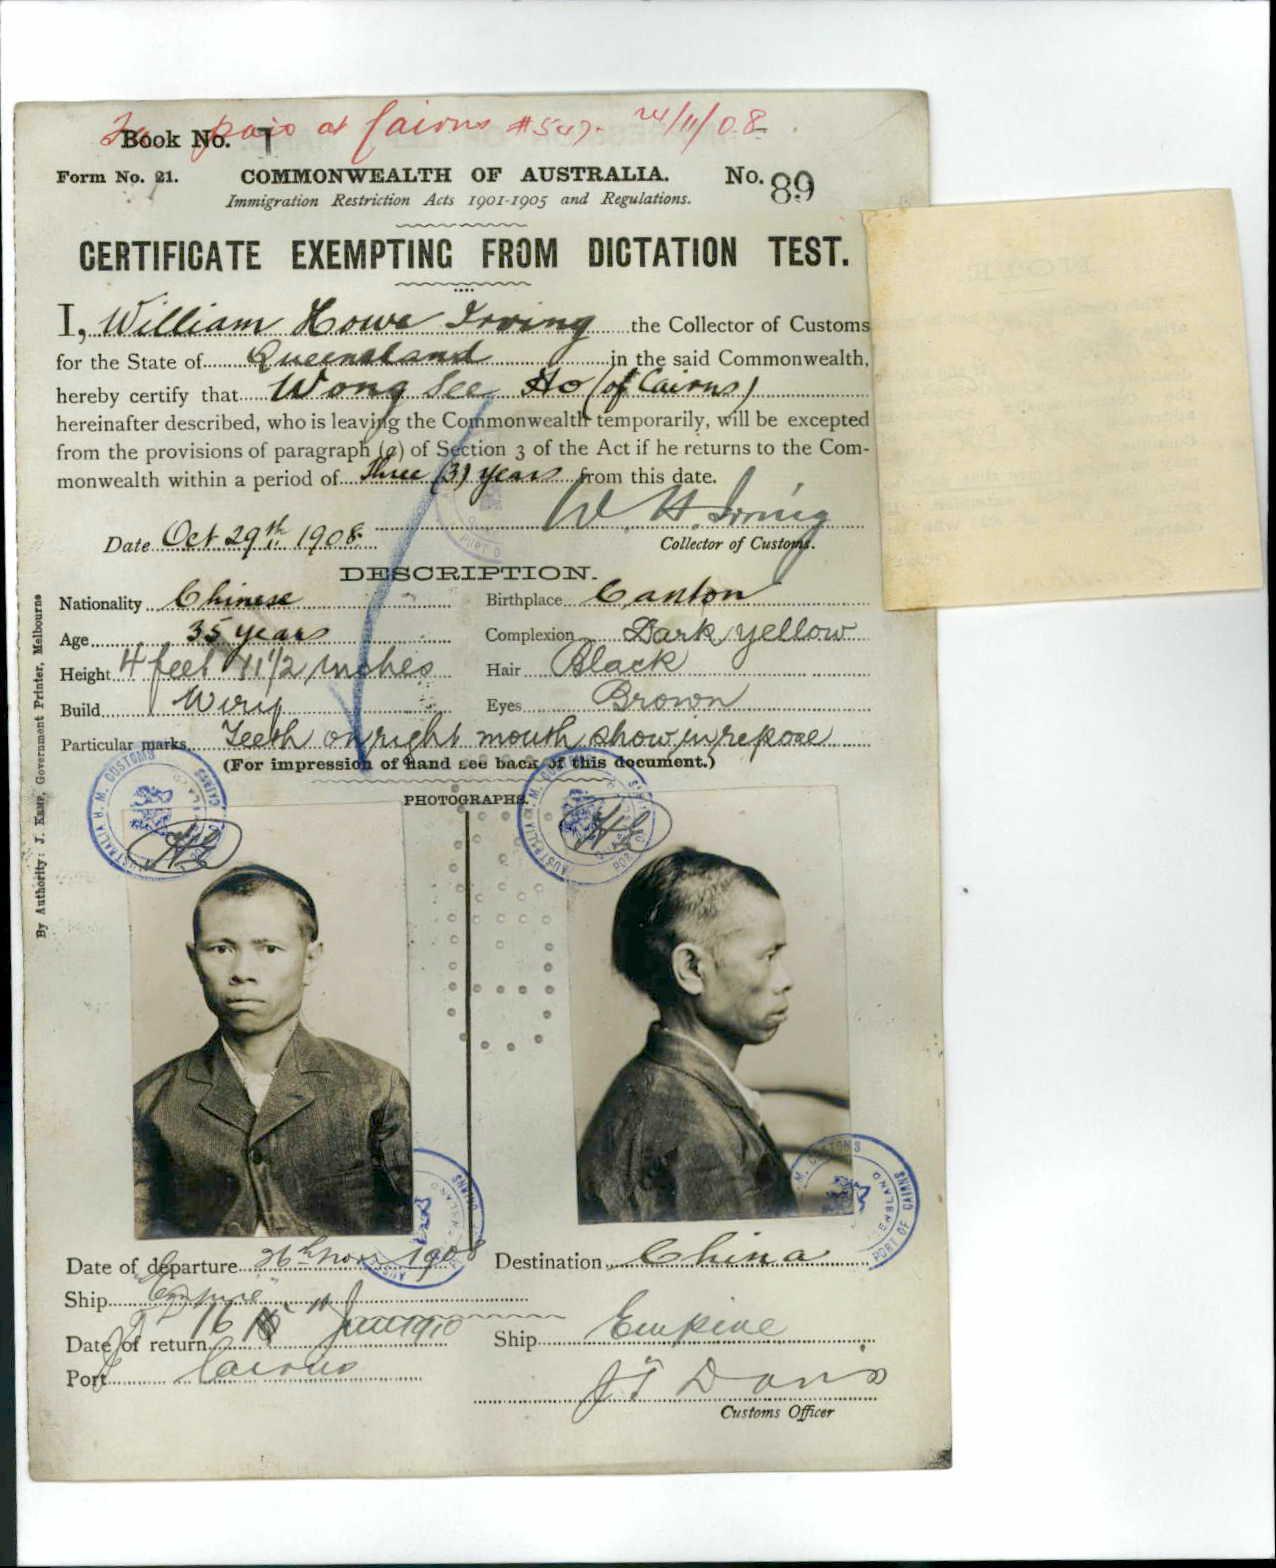 paid at Cairns #547. 24/11/08
Book No. 1
Form No. 21. COMMONWEALTH OF AUSTRALIA. No. 89
Immigration Restriction Acts 1901-1905 and Regulations.
CERTIFICATE EXEMPTING FROM DICTATION TEST.
I, William Howe Irving the Collector of Customs
for the State of Queensland in the said Commonwealth,
hereby certify that Wong See Ho (of Cairns)
hereinafter described, who is leaving the Commonwealth temporarily, will be excepted
from the provisions of paragraph (a) of Section 3 of the Act if he returns to the Com-
monwealth within a period of Three (3) years from this date.
W. H. Irving
Date Oct 29th 1908.
Collector of Customs.
DESCRIPTION.
Nationality Chinese Birthplace Canton
Age 35 years Complexion Dark yellow
Height 4 feet 11 1/2 inches Hair Black
Build Wiry Eyes Brown
Particular marks Teeth on right mouth show in repose
(For impression of hand see back of this document.)
PHOTOGRAPHS.
By Authority: J. Kemp, Government Printer, Melbourne
H. M. CUSTOMS AUSTRALIA PORT OF CAIRNS QUEENSLAND
H. M. CUSTOMS AUSTRALIA PORT OF CAIRNS QUEENSLAND
Date of departure 26th Nov 1908 Destination China
Ship "Empire"
Date of return 16 Jan 1910 Ship Empire
Port Cairns
Customs Officer